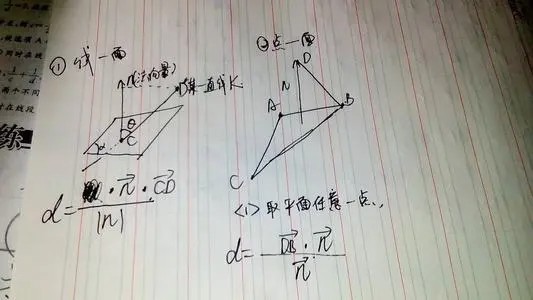 ① 线一面
n(法向量)
D某一直线K
θ
α
C
d = · n⃗ · CD⃗ / |n|
②点一面
D
N
A
B
C
<1> 取平面任意一点、、
d = DB⃗ · n⃗ / n⃗
练